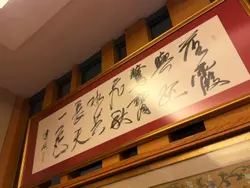 落霞
與孤
鶩齊
飛秋
水共
長天
一色